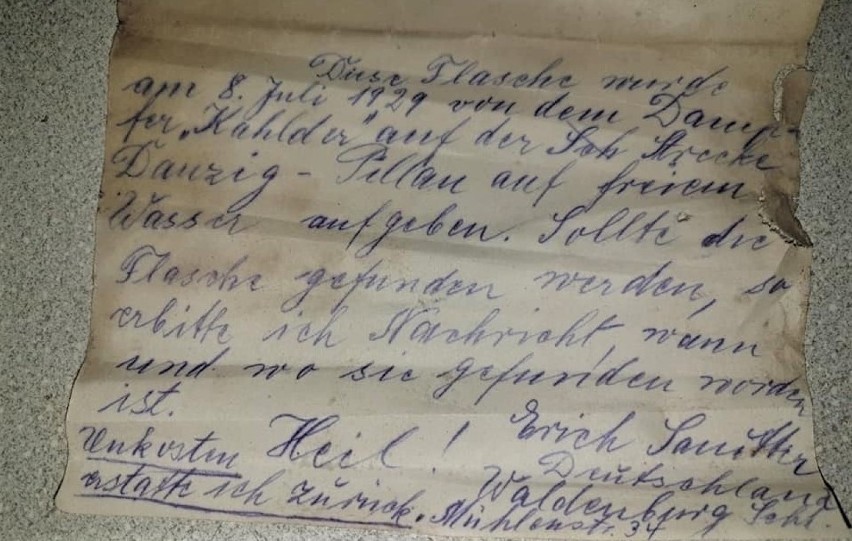 Diese Flasche wurde
am 8. Juli 1929 von dem Damp-
fer „Kahlder" auf der Strecke
Danzig - Pillau auf freiem
Wasser aufgeben. Sollte die
Flasche gefunden werden, so
erbitte ich Nachricht, wann
und wo sie gefunden worden
ist.
Unkosten Heil! Erich
erstatte ich zurück. Deutschland
Waldenburg Schl.
Mühlenstr. 34